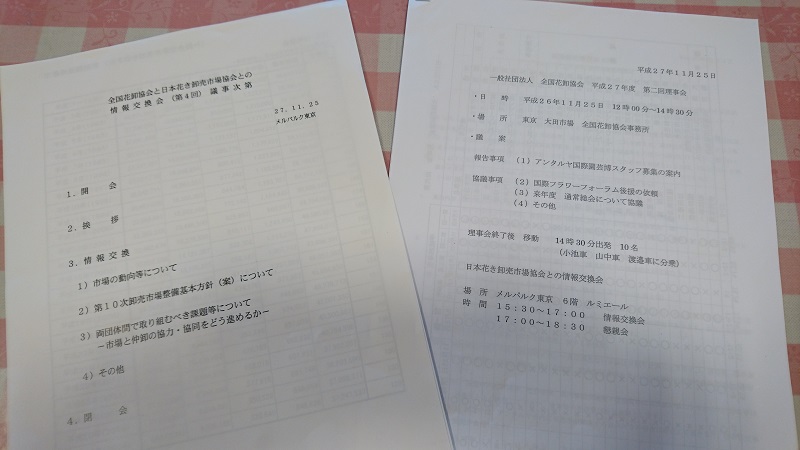 全国花卸協会と日本花き卸売市場協会との
情報交換会（第4回）議事次第
27.11.25
メルパルク東京
1．開　会
2．挨　拶
3．情報交換
1）市場の動向等について
2）第10次卸売市場整備基本方針（案）について
3）両団体間で取り組むべき課題等について
－市場と仲卸の協力・協同をどう進めるか－
4）その他
4．閉　会
平成27年11月25日
一般社団法人　全国花卸協会　平成27年度　第二回理事会
・日　時　平成26年11月25日　12時00分～14時30分
・場　所　東京　大田市場　全国花卸協会事務所
・議　案
報告事項　（1）アンタルヤ国際園芸博スタッフ募集の案内
協議事項　（2）国際フラワーフォーラム後援の依頼
（3）来年度　通常総会について協議
（4）その他
理事会終了後　移動　14時30分出発　10名
（小池車　山中車　渡邉車に分乗）
日本花き卸売市場協会との情報交換会
場　所　メルパルク東京　6階　ルミエール
時　間　15：30～17：00　情報交換会
17：00～18：30　懇親会